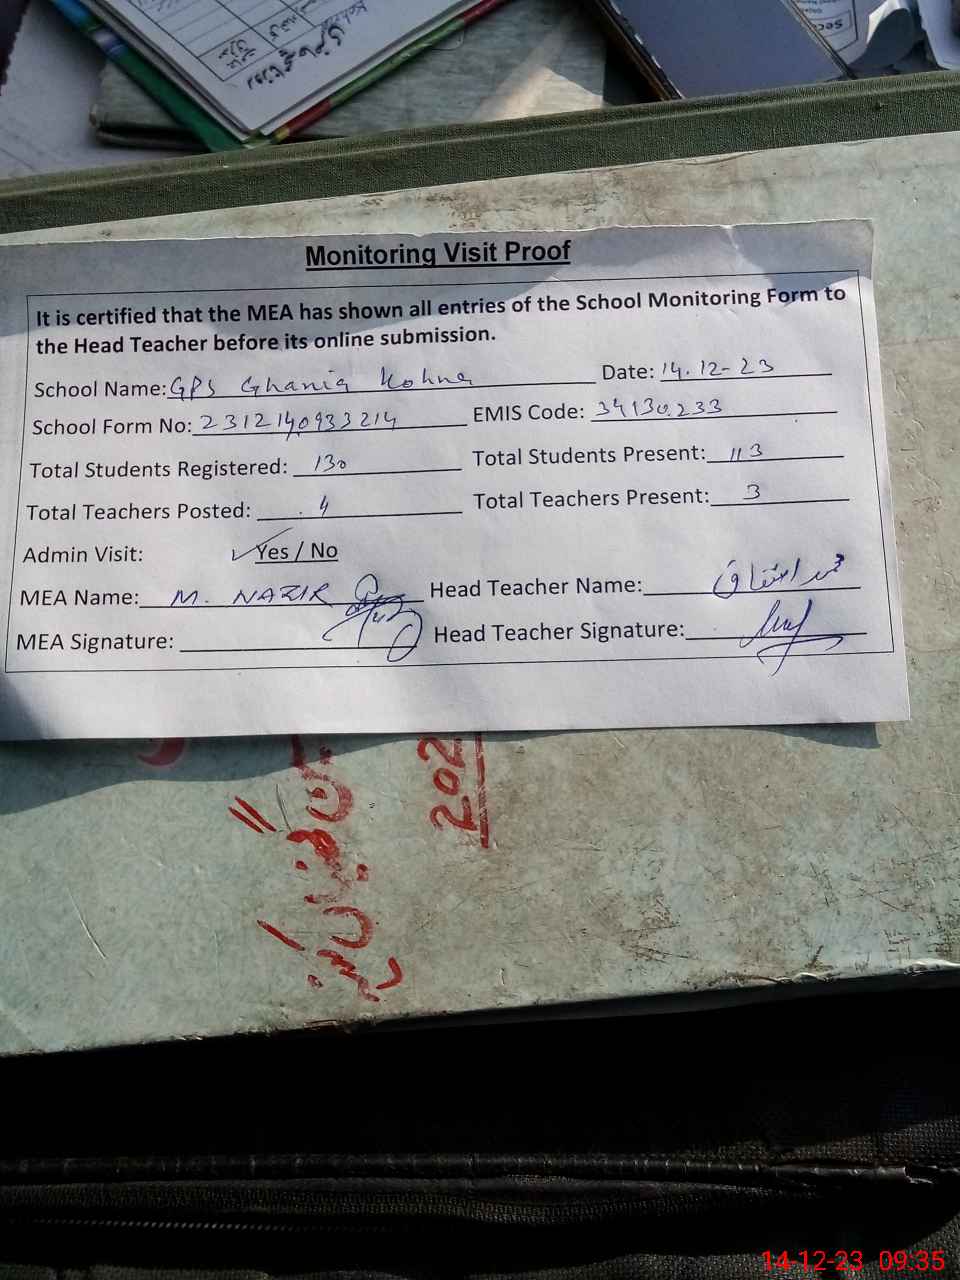 Monitoring Visit Proof
It is certified that the MEA has shown all entries of the School Monitoring Form to
the Head Teacher before its online submission.
School Name: GPS Ghania Kohna Date: 14.12-23
School Form No: 2312140933214 EMIS Code: 34130233
Total Students Registered: 130 Total Students Present: 113
Total Teachers Posted: 4 Total Teachers Present: 3
Admin Visit: Yes / No
MEA Name: M. NAZIR Head Teacher Name: محمد اشفاق
MEA Signature: Head Teacher Signature:
202
14-12-23 09:35